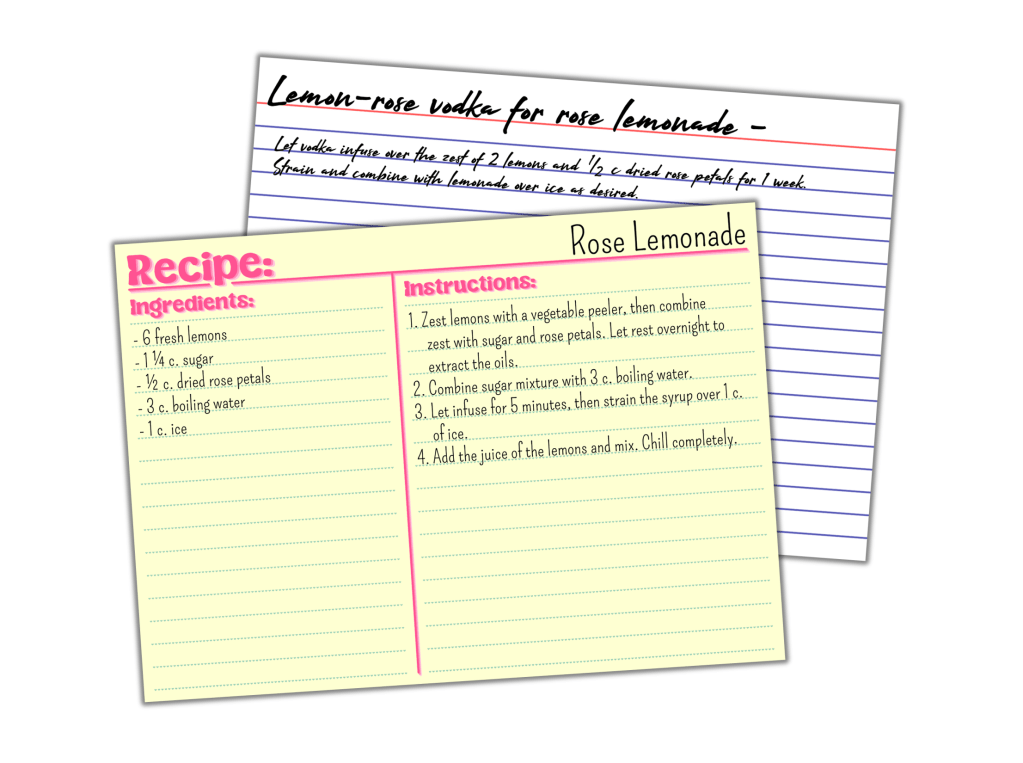 Lemon-rose vodka for rose lemonade -
Let vodka infuse over the zest of 2 lemons and 1/2 c dried rose petals for 1 week.
Strain and combine with lemonade over ice as desired.
Recipe:
Rose Lemonade
Ingredients:
- 6 fresh lemons
- 1 ¼ c. sugar
- ½ c. dried rose petals
- 3 c. boiling water
- 1 c. ice
Instructions:
1. Zest lemons with a vegetable peeler, then combine
zest with sugar and rose petals. Let rest overnight to
extract the oils.
2. Combine sugar mixture with 3 c. boiling water.
3. Let infuse for 5 minutes, then strain the syrup over 1 c.
of ice.
4. Add the juice of the lemons and mix. Chill completely.